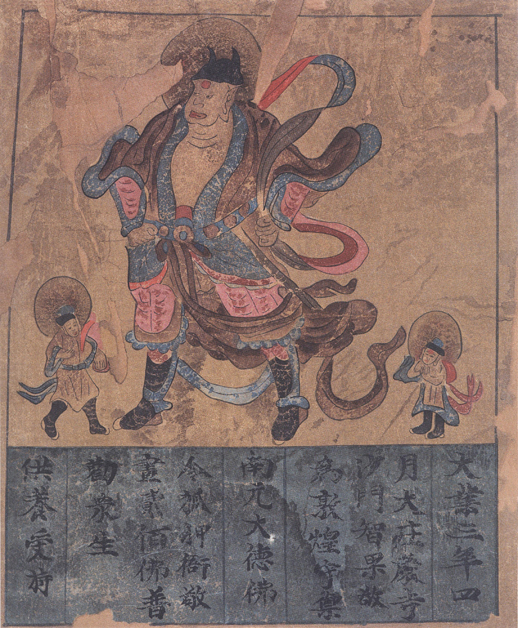 大業三年四
月大莊嚴寺
沙門智果敬
為敦煌守禦
南无大德佛
令狐押衙敬
畫貳佰佛普
勸衆生
供養受持